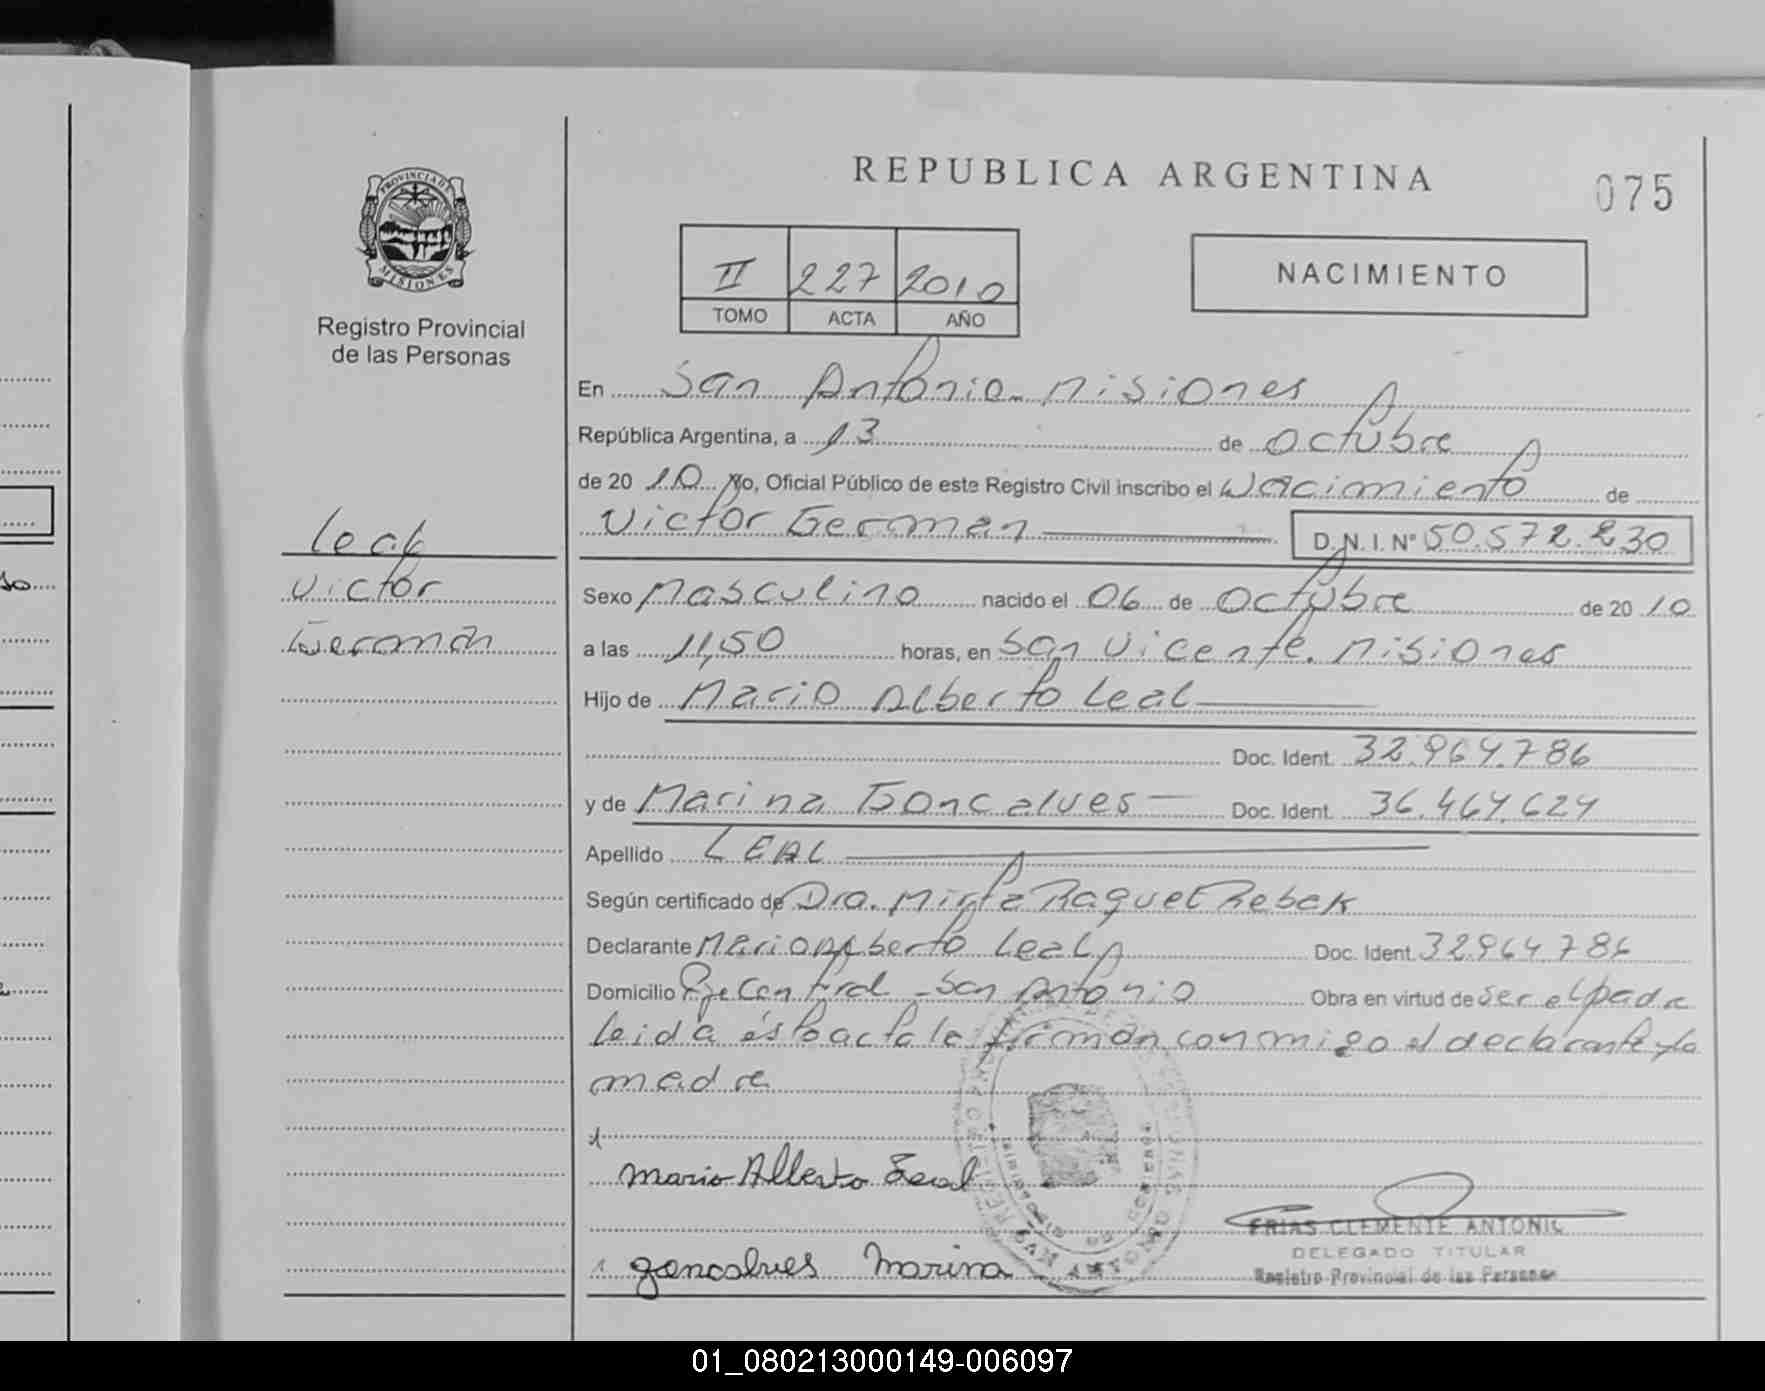 REPUBLICA ARGENTINA
075
PROVINCIA DE MISIONES
Registro Provincial
de las Personas
II 227 2010
TOMO ACTA AÑO
NACIMIENTO
En San Antonio - Misiones
República Argentina, a 13 de Octubre
de 2010 Yo, Oficial Público de este Registro Civil inscribo el Nacimiento de
Victor German D.N.I. Nº 50.572.230
Leal
Victor
German
Sexo Masculino nacido el 06 de Octubre de 2010
a las 11,50 horas, en San Vicente. Misiones
Hijo de Mario Alberto Leal
Doc. Ident. 32.964.786
y de Marina Goncalves Doc. Ident. 36.464.624
Apellido LEAL
Según certificado de Dra. Mirta Raquel Rebak
Declarante Mario Alberto Leal Doc. Ident. 32.964.786
Domicilio Pje Central - San Antonio Obra en virtud de Ser el padre
leida ésta acta la firman conmigo el declarante y la
madre
Mario Alberto Leal
goncalves Marina
SAN ANTONIO
FRIAS CLEMENTE ANTONIO
DELEGADO TITULAR
Registro Provincial de las Personas
01_080213000149-006097